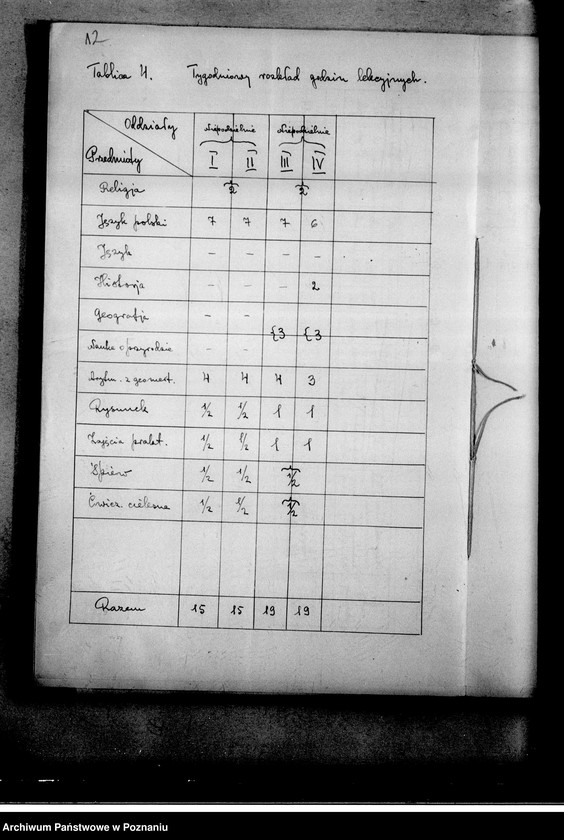 12
Tablica 4. Tygodniowy rozkład godzin lekcyjnych.
Oddziały
Przedmioty
Niepodzielnie Niepodzielnie
I II III IV
Religja 2 2
Język polski 7 7 7 6
Język – – – –
Historja – – – 2
Geografja – –
{3 {3
Nauka o przyrodzie – –
Arytm. z geometr. 4 4 4 3
Rysunek 1/2 1/2 1 1
Zajęcia prakt. 1/2 1/2 1 1
Śpiew 1/2 1/2 1/2
Ćwicz. cielesne 1/2 1/2 1/2
Razem 15 15 19 19
Archiwum Państwowe w Poznaniu